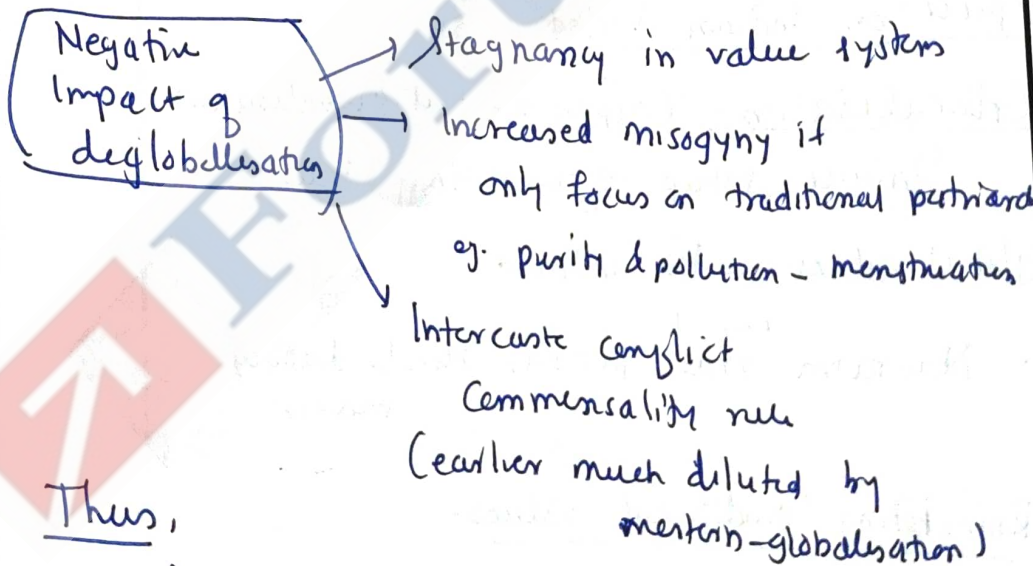 Negative
Impact of
deglobalisation
→ Stagnancy in value system
→ Increased misogyny if
only focus on traditional patriarc
eg. purity & pollution - menstruation
Intercaste conflict
Commensality rule
(earlier much diluted by
western-globalisation)
Thus,
For